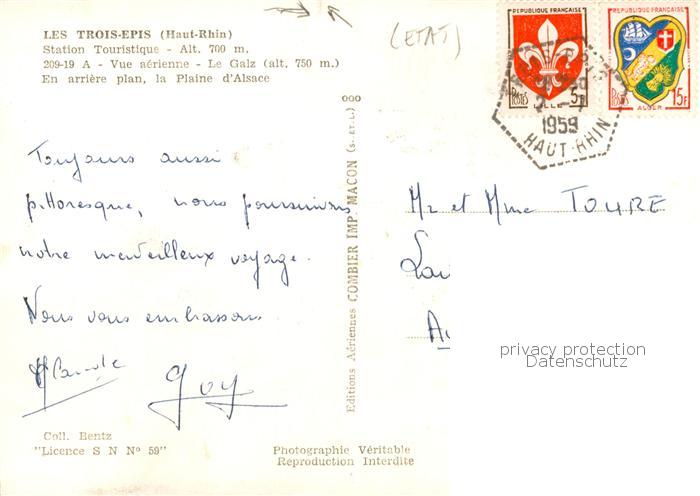 LES TROIS-EPIS (Haut-Rhin)
Station Touristique - Alt. 700 m.
209-19 A - Vue aérienne - Le Galz (alt. 750 m.)
En arrière plan, la Plaine d'Alsace
(ETAT)
REPUBLIQUE FRANÇAISE
POSTES 5F
LILLE
REPUBLIQUE FRANÇAISE
POSTES 15F
ALGER
1959
HAUT-RHIN
Toujours aussi
pittoresque, nous poursuivons
notre merveilleux voyage.
Nous vous embrassons
Goy
Editions Aériennes COMBIER IMP. MACON (S.-ET-L.)
Mr et Mme TOURE
privacy protection
Datenschutz
Coll. Bentz
"Licence S N Nº 59"
Photographie Véritable
Reproduction Interdite